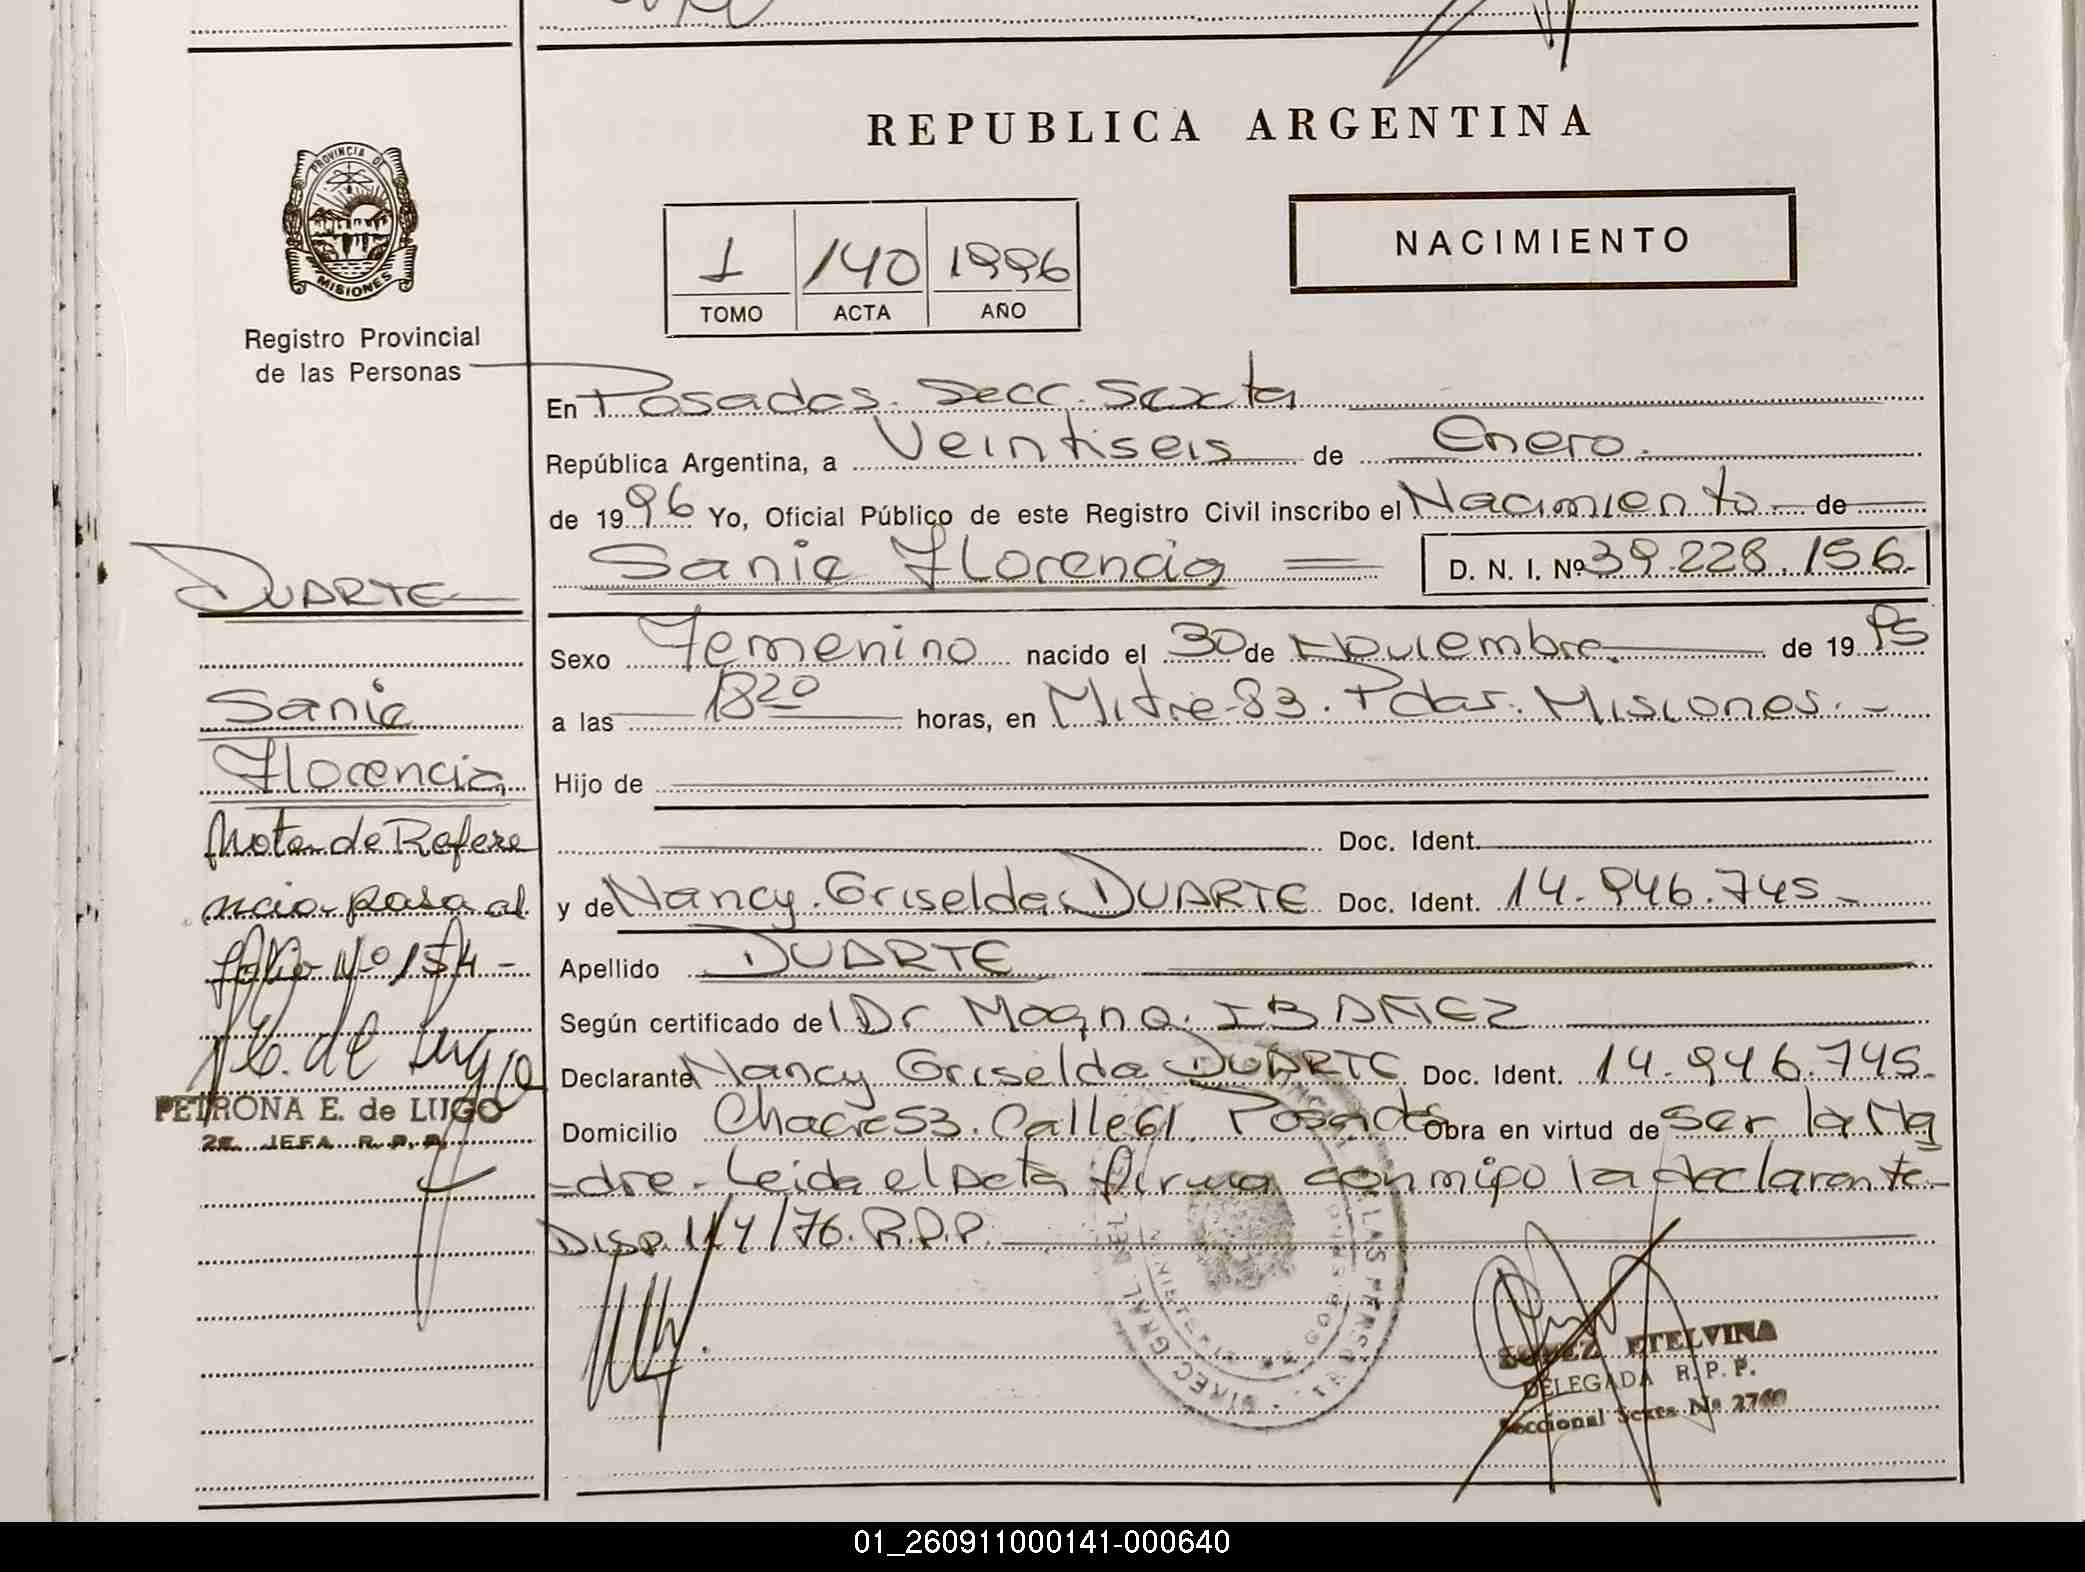 REPUBLICA ARGENTINA
PROVINCIA DE
MISIONES
Registro Provincial
de las Personas
1 140 1996
TOMO ACTA AÑO
NACIMIENTO
En Posadas. Secc. Sexta
República Argentina, a Veintiseis de Enero.
de 1996 Yo, Oficial Público de este Registro Civil inscribo el Nacimiento de
Sanie Florencia D. N. I. Nº 39.228.156.
Sexo Femenino nacido el 30 de Noviembre de 1995
a las 18 20 horas, en Mitre 83. Pdas. Misiones. -
Hijo de
Doc. Ident.
y de Nancy Griselda DUARTE Doc. Ident. 14.946.745-
Apellido DUARTE
Según certificado del Dr Magno. IBAÑEZ
Declarante Nancy Griselda DUARTE Doc. Ident. 14.946.745.
Domicilio Chacra 53. Calle 61. Posadas Obra en virtud de ser la Ma
-dre - Leida el Acta firma conmigo la declarante-
Disp. 114/76. R.P.P.
DUARTE
Sanie
Florencia
Nota de Refere
ncia pasa al
folio Nº 154 -
PETRONA E. de LUGO
2ª JEFA R.P.P.
ETELVINA
DELEGADA R.P.P.
Seccional Sexta Nº 2760
01_260911000141-000640